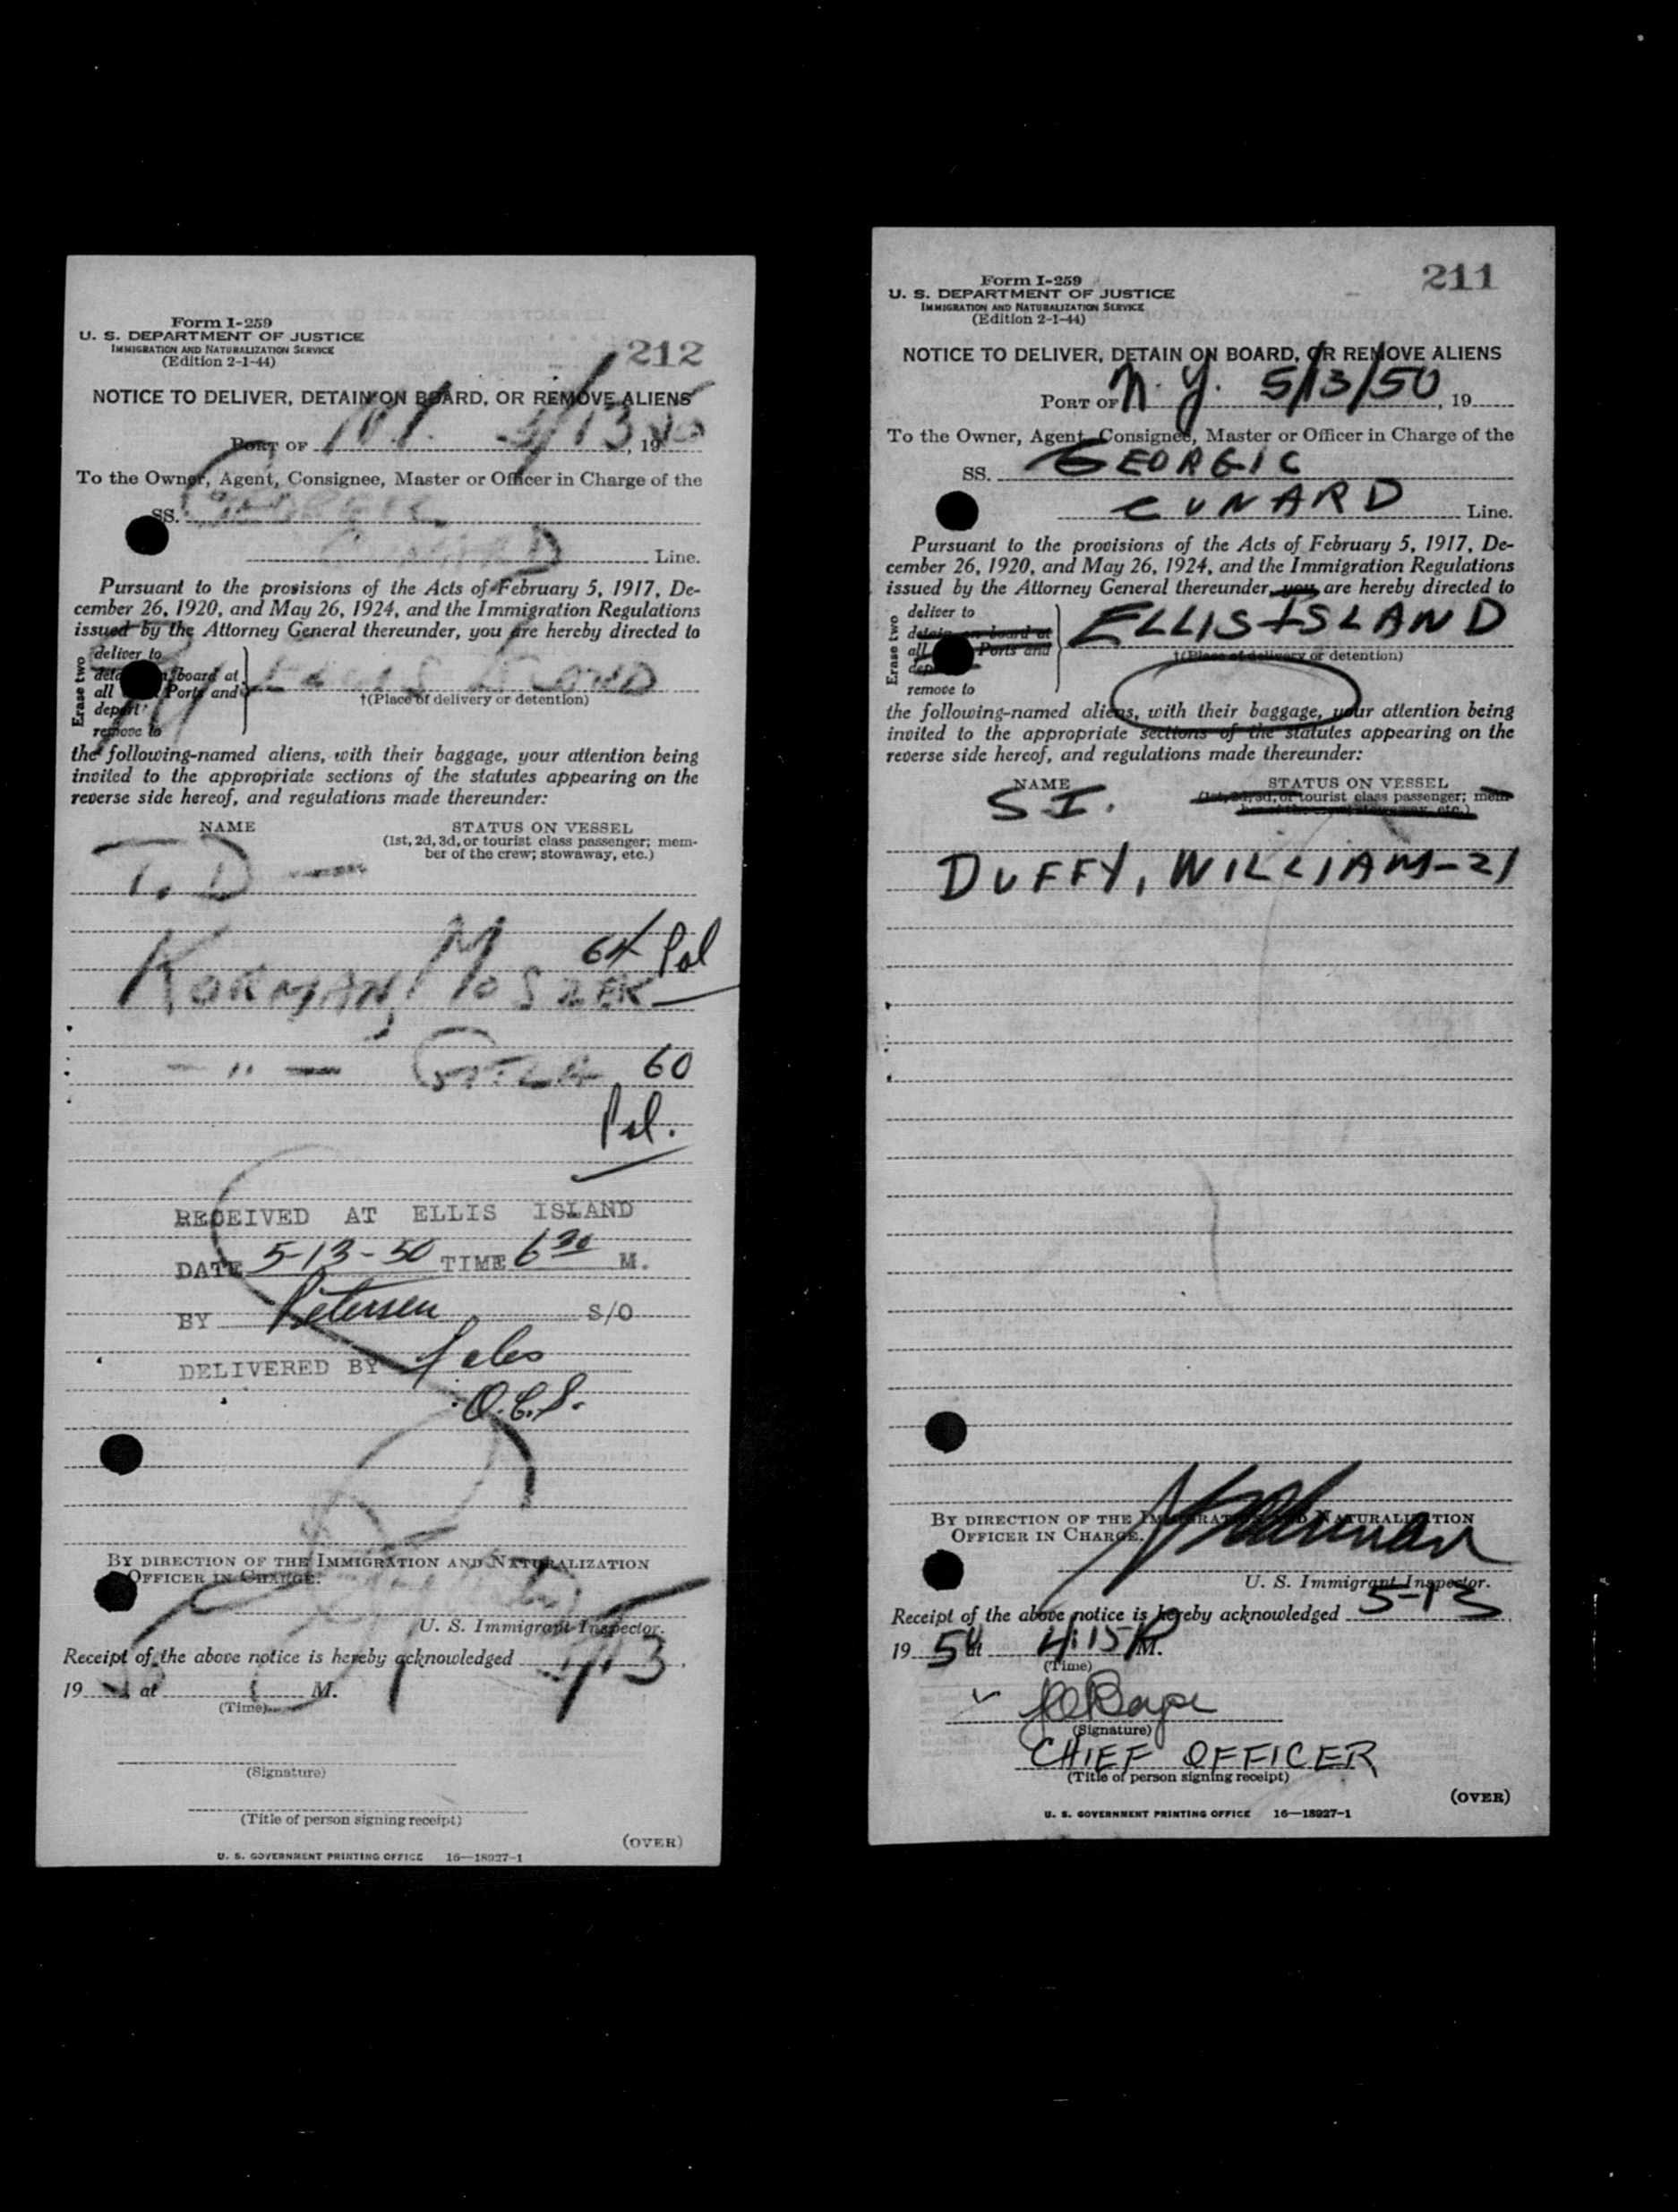 Form I-259
U. S. DEPARTMENT OF JUSTICE
IMMIGRATION AND NATURALIZATION SERVICE
(Edition 2-1-44)
212
NOTICE TO DELIVER, DETAIN ON BOARD, OR REMOVE ALIENS
PORT OF N.Y. 5/13 1950
To the Owner, Agent, Consignee, Master or Officer in Charge of the
SS. GEORGIC
CUNARD Line.
Pursuant to the provisions of the Acts of February 5, 1917, De-
cember 26, 1920, and May 26, 1924, and the Immigration Regulations
issued by the Attorney General thereunder, you are hereby directed to
Erase two
deliver to
board at
all Ports and
depart
remove to
ELLIS ISLAND
†(Place of delivery or detention)
the following-named aliens, with their baggage, your attention being
invited to the appropriate sections of the statutes appearing on the
reverse side hereof, and regulations made thereunder:
NAME STATUS ON VESSEL
(1st, 2d, 3d, or tourist class passenger; mem-
ber of the crew; stowaway, etc.)
T. D —
KORMAN, MOSZEK 64 Pol
— " — 60
Pol.
RECEIVED AT ELLIS ISLAND
DATE 5-13-50 TIME 6 30 M.
BY Petersen S/O
DELIVERED BY
BY DIRECTION OF THE IMMIGRATION AND NATURALIZATION
OFFICER IN CHARGE.
U. S. Immigrant Inspector.
Receipt of the above notice is hereby acknowledged 5/13,
19 at M.
(Time)
(Signature)
(Title of person signing receipt)
(OVER)
U. S. GOVERNMENT PRINTING OFFICE 16—18927-1
Form I-259
U. S. DEPARTMENT OF JUSTICE
IMMIGRATION AND NATURALIZATION SERVICE
(Edition 2-1-44)
211
NOTICE TO DELIVER, DETAIN ON BOARD, OR REMOVE ALIENS
PORT OF N.Y. 5/13/50, 19
To the Owner, Agent, Consignee, Master or Officer in Charge of the
SS. GEORGIC
CUNARD Line.
Pursuant to the provisions of the Acts of February 5, 1917, De-
cember 26, 1920, and May 26, 1924, and the Immigration Regulations
issued by the Attorney General thereunder, you are hereby directed to
Erase two
deliver to
detain on board at
all Ports and
remove to
ELLIS ISLAND
†(Place of delivery or detention)
the following-named aliens, with their baggage, your attention being
invited to the appropriate sections of the statutes appearing on the
reverse side hereof, and regulations made thereunder:
NAME STATUS ON VESSEL
(1st, 2d, 3d, or tourist class passenger; mem-
ber of the crew, stowaway, etc.)
S.I.
DUFFY, WILLIAM-21
BY DIRECTION OF THE IMMIGRATION AND NATURALIZATION
OFFICER IN CHARGE.
U. S. Immigrant Inspector.
Receipt of the above notice is hereby acknowledged 5-13,
19 50 at 4:15 P M.
(Time)
(Signature)
CHIEF OFFICER
(Title of person signing receipt)
(OVER)
U. S. GOVERNMENT PRINTING OFFICE 16—18927-1